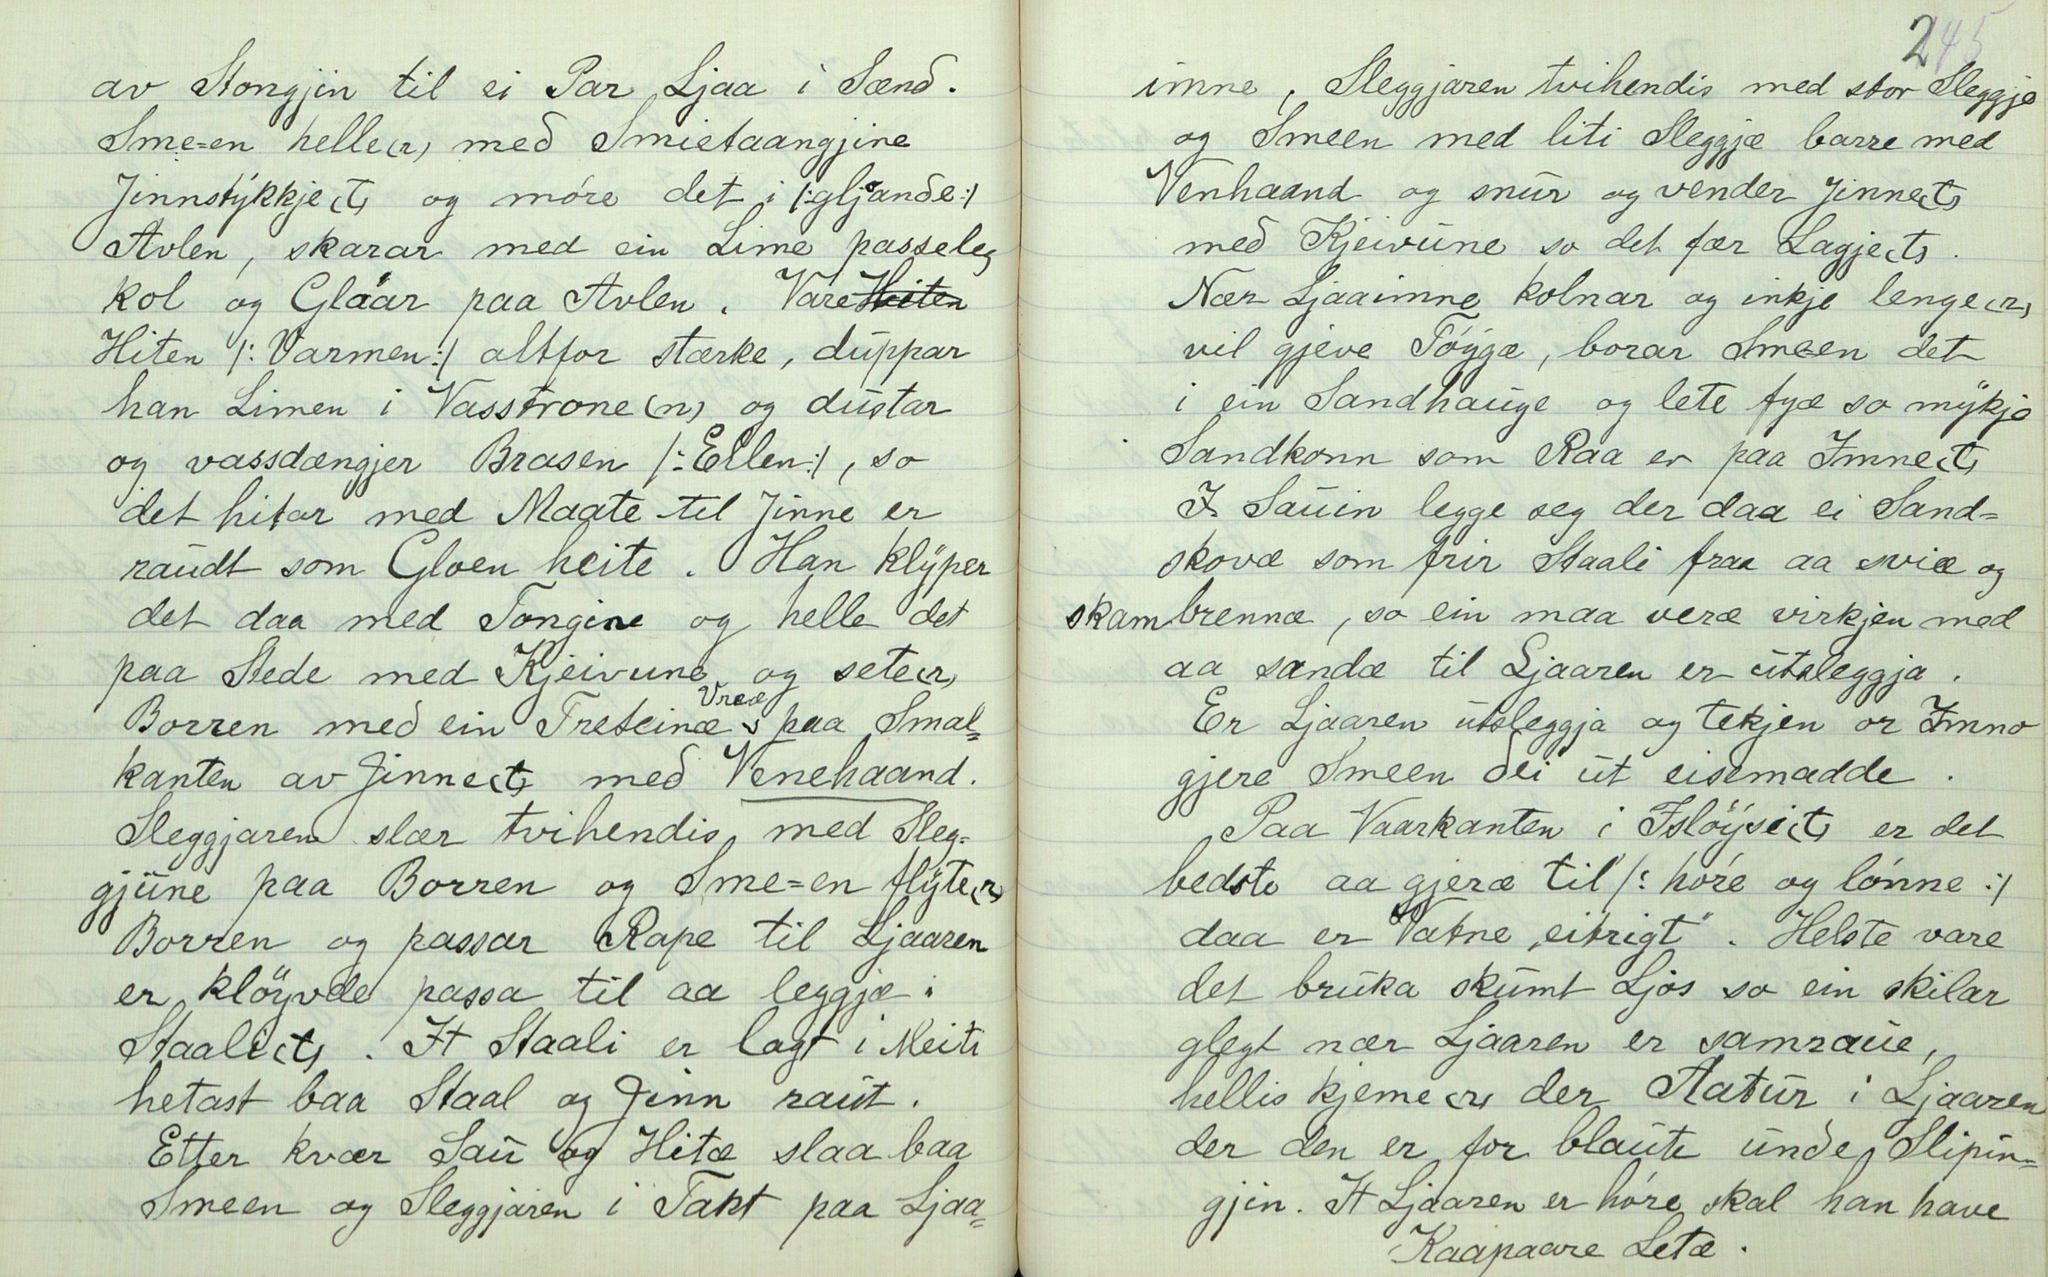 av Stongjin til ei Par Ljaa i Sænð.
Sme=en helle(r) með Smietaangjine
Jinnstykkje(t) og móre det i /:gljånðe:/
Avlen, skarar med ein Lime passeleg
kol og Glåår paa Avlen. Vare Heiten
Hiten /: Varmen :/ altfor stærke, duppar
han Limen i Vasstrone(n) og dustar
og vassdængjer Brasen /: Ellen :/, so
det hitar med Maate til Jinne er
raudt som Gloen heite. Han klyper
det daa med Tongine og helle det
paa Stede med Kjeivune og sete(r)
Vreæ
Borren með ein Treteinæ paa Smal=
kanten av Jinne(t) með Venehaand.
Sleggjaren slær tvihendis med Sleg=
gjune paa Borren og Sme=en flyte(r)
Borren og passar Rape til Ljaaren
er klöyvde passa til aa leggjæ i
Staali(t). It Staali er lagt i Meiti
hetast baa Staal og Jinn raut.
Etter kvær Sau og Hitæ slaa baa
Smeen og Sleggjaren i Takt paa Ljaa=
245
imne, Sleggjaren tvihendis med stor Sleggje
og Smeen med liti Sleggjæ barre med
Venhaand og snur og vender Jinne(t)
með Kjeivune so det fær Lagje(t).
Nær Ljaaimne kolnar og inkje lenge(r)
vil gjeve Töggæ, borar Sme-en det
i ein Sandhauge og lete fyæ so mykje
Sandkonn som Raa er paa Imne(t)
I Sauin legge seg der daa ei Sand=
skovæ som frir Staali fraa aa sviæ og
skambrennæ, so ein maa veræ virkjen med
aa sandæ til Ljaaren er utsleggja.
Er Ljaaren utsleggja og tekjen or Imno
gjere Smeen ðei ut eisemadde.
Paa Vaarkanten i Islöyse(t) er det
bedste aa gjeræ til /: hóre og lónne :/
daa er Vatne „eitrigt". Helste vare
det bruka skumt Ljos so ein skilar
glegt nær Ljaaren er samraue,
hellis kjeme(r) der Aatur i Ljaaren
der den er for blaute unðe Slipin=
gjin. It Ljaaren er hóre skal han have
Kaapaare Letæ.